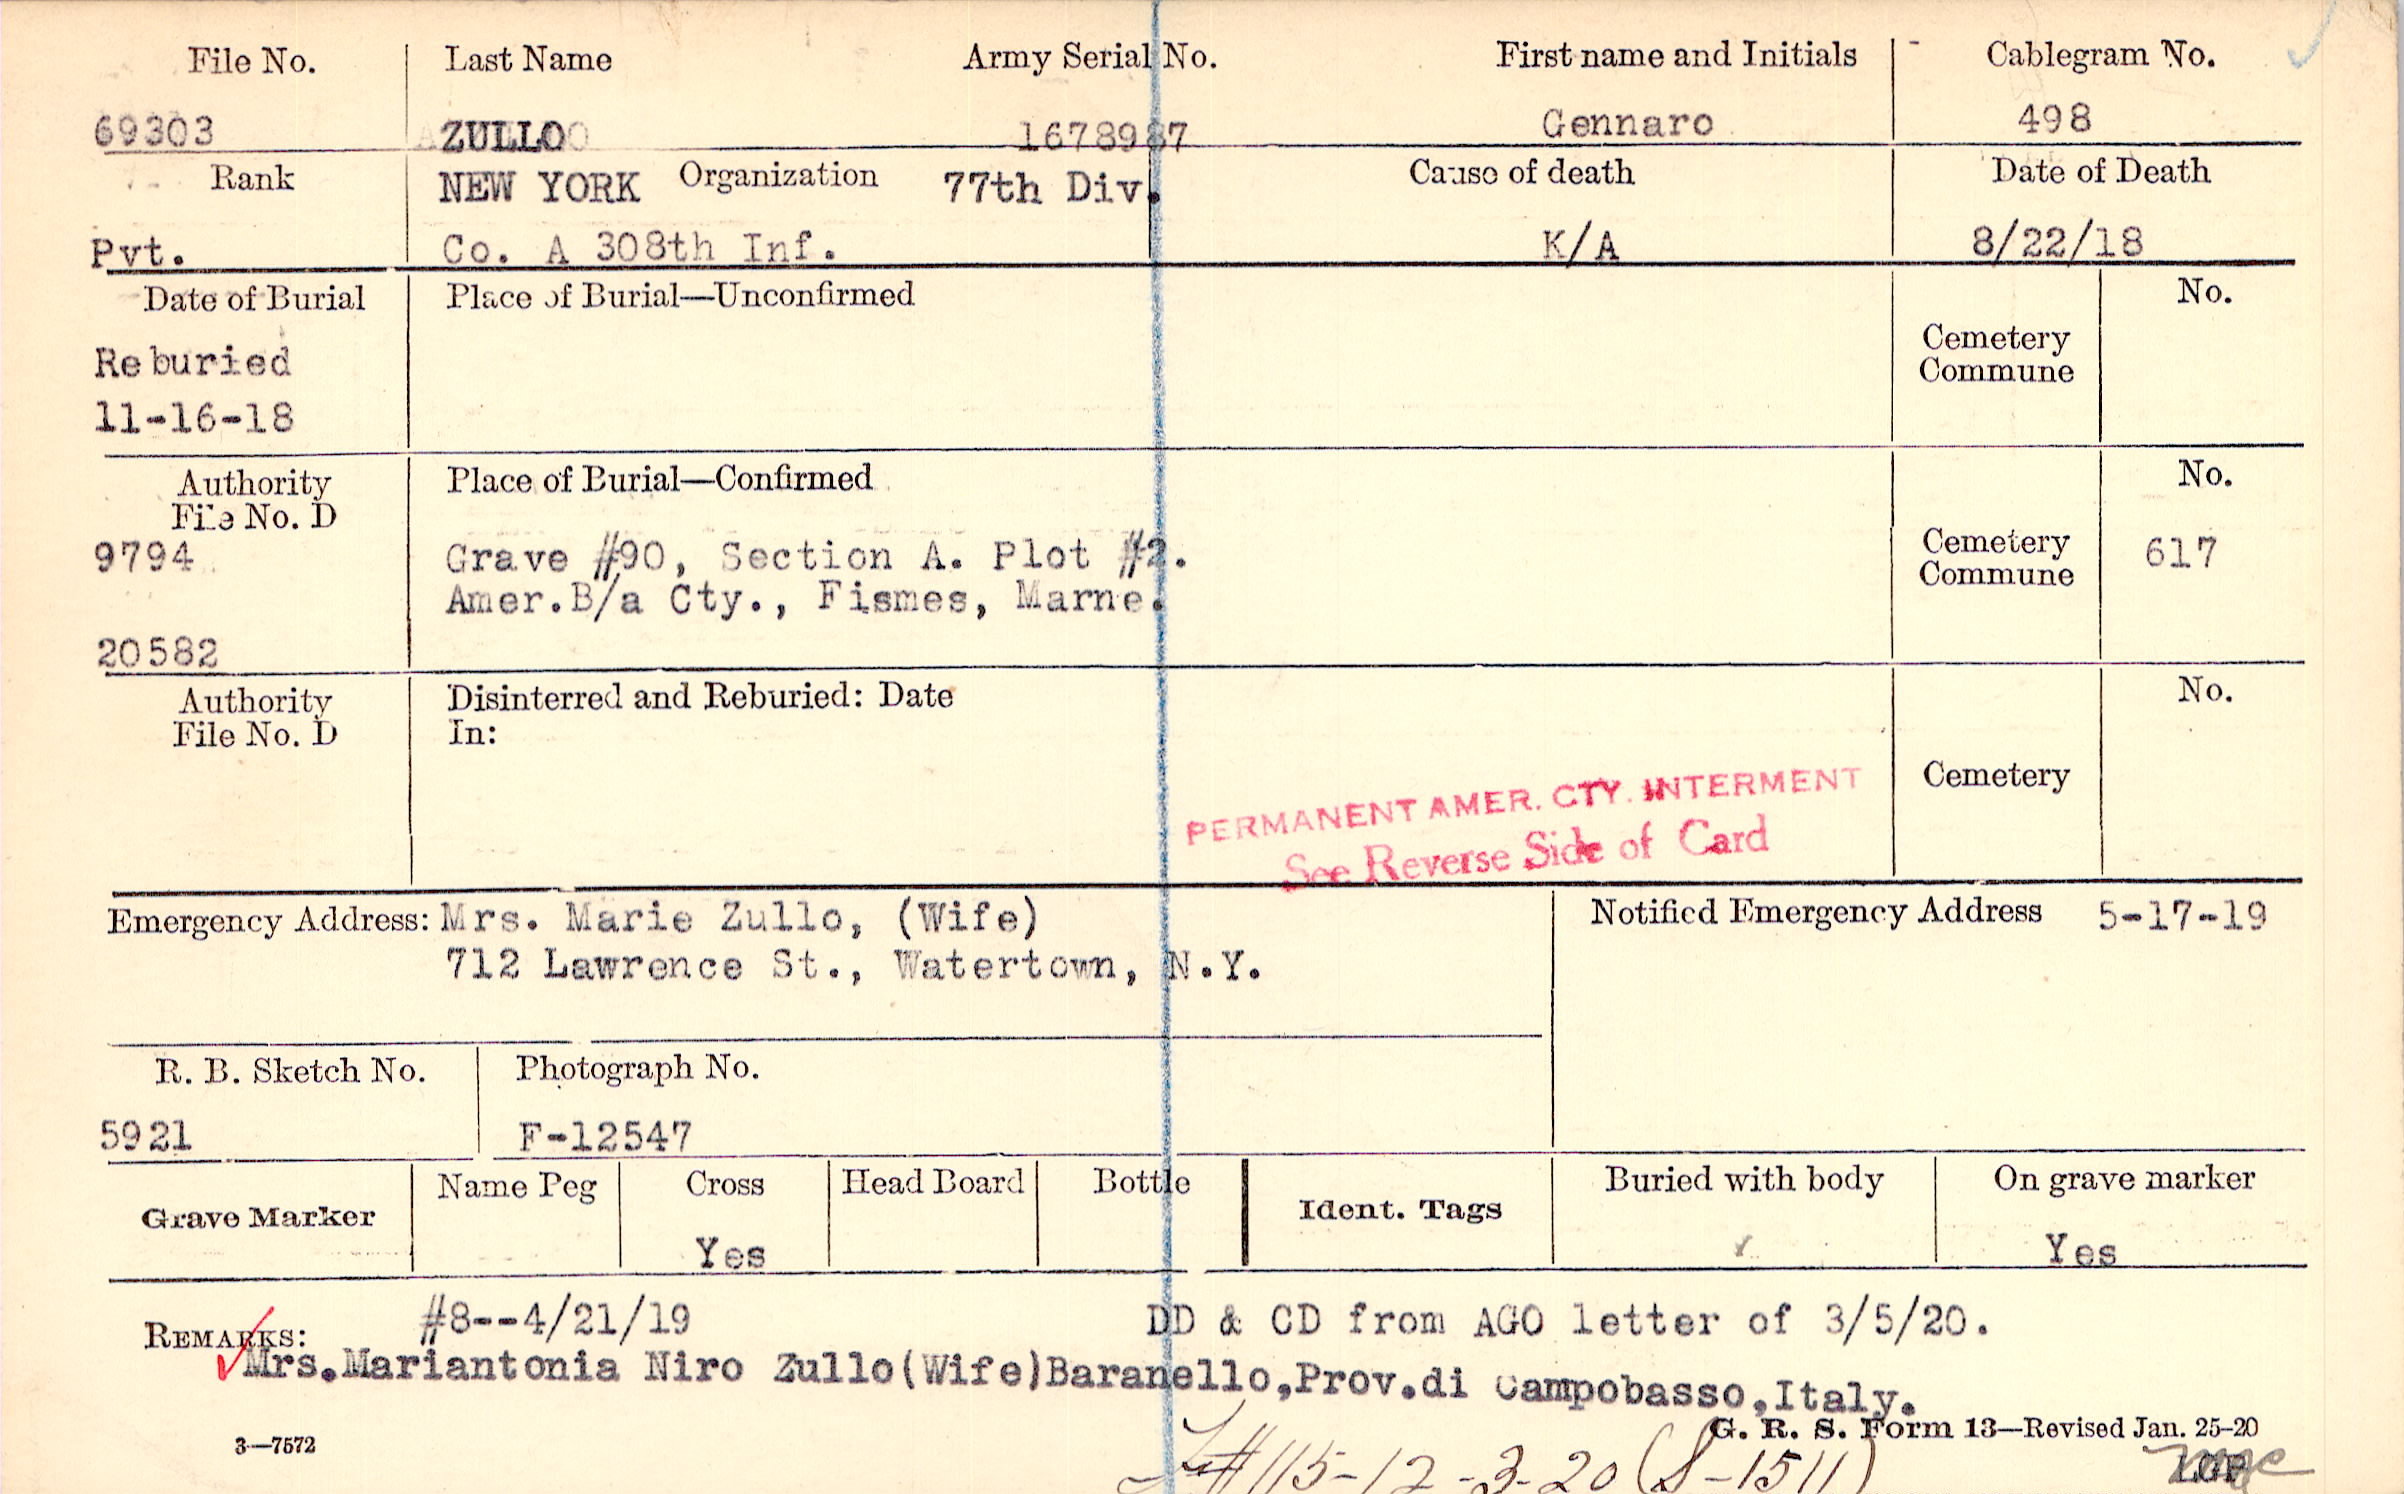 File No. Last Name Army Serial No. First name and Initials Cablegram No.
69303 ZULLO 1678987 Gennaro 498
Rank NEW YORK Organization 77th Div. Cause of death Date of Death
Pvt. Co. A 308th Inf. K/A 8/22/18
Date of Burial Place of Burial—Unconfirmed No.
Cemetery
Commune
Reburied
11-16-18
Authority Place of Burial—Confirmed No.
File No. D
9794 Grave #90, Section A. Plot #2. Cemetery 617
Amer.B/a Cty., Fismes, Marne. Commune
20582
Authority Disinterred and Reburied: Date No.
File No. D In:
Cemetery
PERMANENT AMER. CTY. INTERMENT
See Reverse Side of Card
Emergency Address: Mrs. Marie Zullo, (Wife) Notified Emergency Address 5-17-19
712 Lawrence St., Watertown, N.Y.
R. B. Sketch No. Photograph No.
5921 F-12547
Grave Marker Name Peg Cross Head Board Bottle Ident. Tags Buried with body On grave marker
Yes Yes
REMARKS: #8--4/21/19 DD & CD from AGO letter of 3/5/20.
Mrs.Mariantonia Niro Zullo(Wife)Baranello,Prov.di Campobasso,Italy.
3—7572 G. R. S. Form 13—Revised Jan. 25-20
#115-12-3-20 (S-1511)